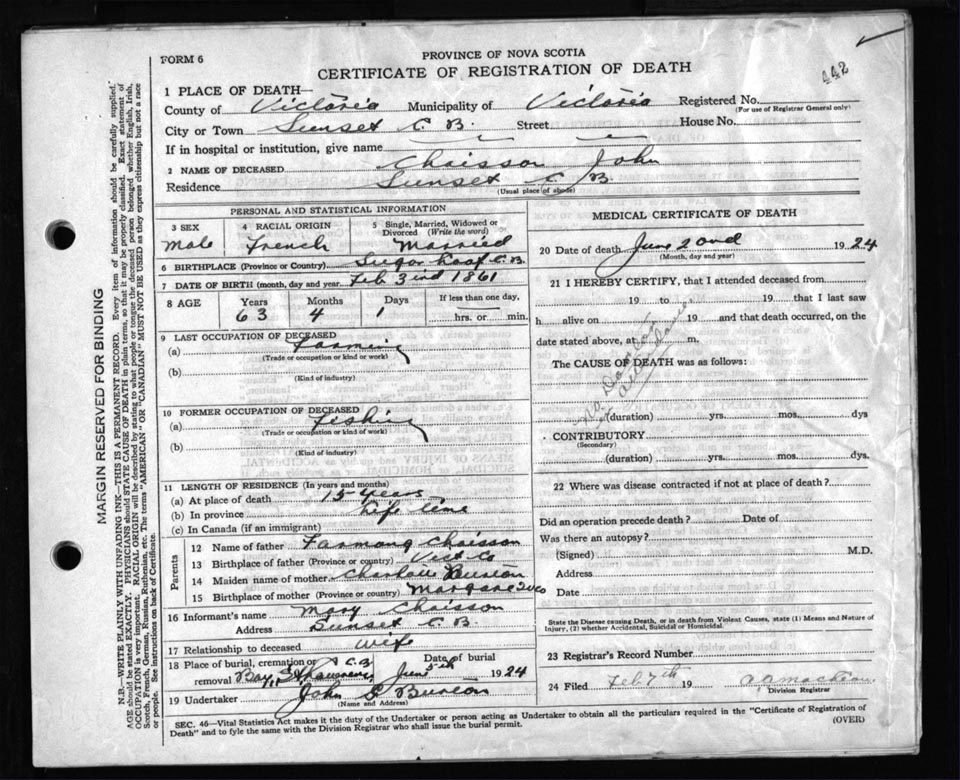 442
FORM 6
PROVINCE OF NOVA SCOTIA
CERTIFICATE OF REGISTRATION OF DEATH
1 PLACE OF DEATH—
County of Victoria Municipality of Victoria Registered No.
(For use of Registrar General only)
City or Town Sunset C. B. Street House No.
If in hospital or institution, give name
2 NAME OF DECEASED Chaisson John
Residence Sunset C. B.
(Usual place of abode)
PERSONAL AND STATISTICAL INFORMATION
3 SEX Male
4 RACIAL ORIGIN French
5 Single, Married, Widowed or Divorced (Write the word) Married
6 BIRTHPLACE (Province or Country) Sugar Loaf C. B
7 DATE OF BIRTH (month, day and year) Feb 3 1861
8 AGE Years Months Days If less than one day,
63 4 1 hrs. or min.
9 LAST OCCUPATION OF DECEASED
(a) Farming
(Trade or occupation or kind or work)
(b)
(Kind of industry)
10 FORMER OCCUPATION OF DECEASED
(a) Fishing
(Trade or occupation or kind or work)
(b)
(Kind of industry)
11 LENGTH OF RESIDENCE (In years and months)
(a) At place of death 15 years
(b) In province Life time
(c) In Canada (if an immigrant)
Parents
12 Name of father Chaisson
13 Birthplace of father (Province or country) Vict Co
14 Maiden name of mother Charlotte Burton
15 Birthplace of mother (Province or country) Margaree
16 Informant's name Mary Chaisson
Address Sunset C B
17 Relationship to deceased wife
18 Place of burial, cremation or removal Bay St C. B Date of burial June 5th 1924
19 Undertaker John Burton
(Name and Address)
MEDICAL CERTIFICATE OF DEATH
20 Date of death June 2 1924
(Month, day and year)
21 I HEREBY CERTIFY, that I attended deceased from
19 to 19 that I last saw
h alive on 19 and that death occurred, on
date stated above, at m.
The CAUSE OF DEATH was as follows:
(duration) yrs. mos. dys
CONTRIBUTORY
(Secondary)
(duration) yrs. mos. dys.
22 Where was disease contracted if not at place of death?
Did an operation precede death? Date of
Was there an autopsy?
(Signed) M.D.
Address
Date
State the Disease causing Death, or in death from Violent Causes, state (1) Means and Nature of
Injury, (2) whether Accidental, Suicidal or Homicidal.
23 Registrar's Record Number
24 Filed Feb 7th 19
Division Registrar
SEC. 46—Vital Statistics Act makes it the duty of the Undertaker or person acting as Undertaker to obtain all the particulars required in the "Certificate of Registration of
Death" and to fyle the same with the Division Registrar who shall issue the burial permit.
(OVER)
MARGIN RESERVED FOR BINDING
N.B.—WRITE PLAINLY WITH UNFADING INK—THIS IS A PERMANENT RECORD. Every item of information should be carefully supplied.
AGE should be stated EXACTLY. PHYSICIANS should STATE CAUSE OF DEATH in plain terms, so that it may be properly classified. Exact statement of
OCCUPATION is very important. RACIAL ORIGIN will be described by stating to what people or tongue the deceased person belonged whether English, Irish,
Scotch, French, German, Russian, Ruthenian, etc. The terms "AMERICAN" or "CANADIAN" MUST NOT BE USED as they express citizenship but not a race
or people. See instructions on back of Certificate.